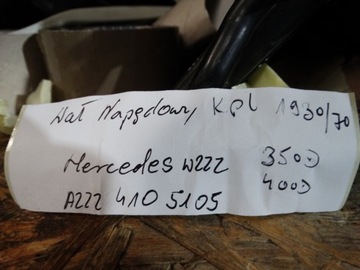 Wał Napędowy Kpl 1930/70
Mercedes W222 350D
400D
A222 410 5105